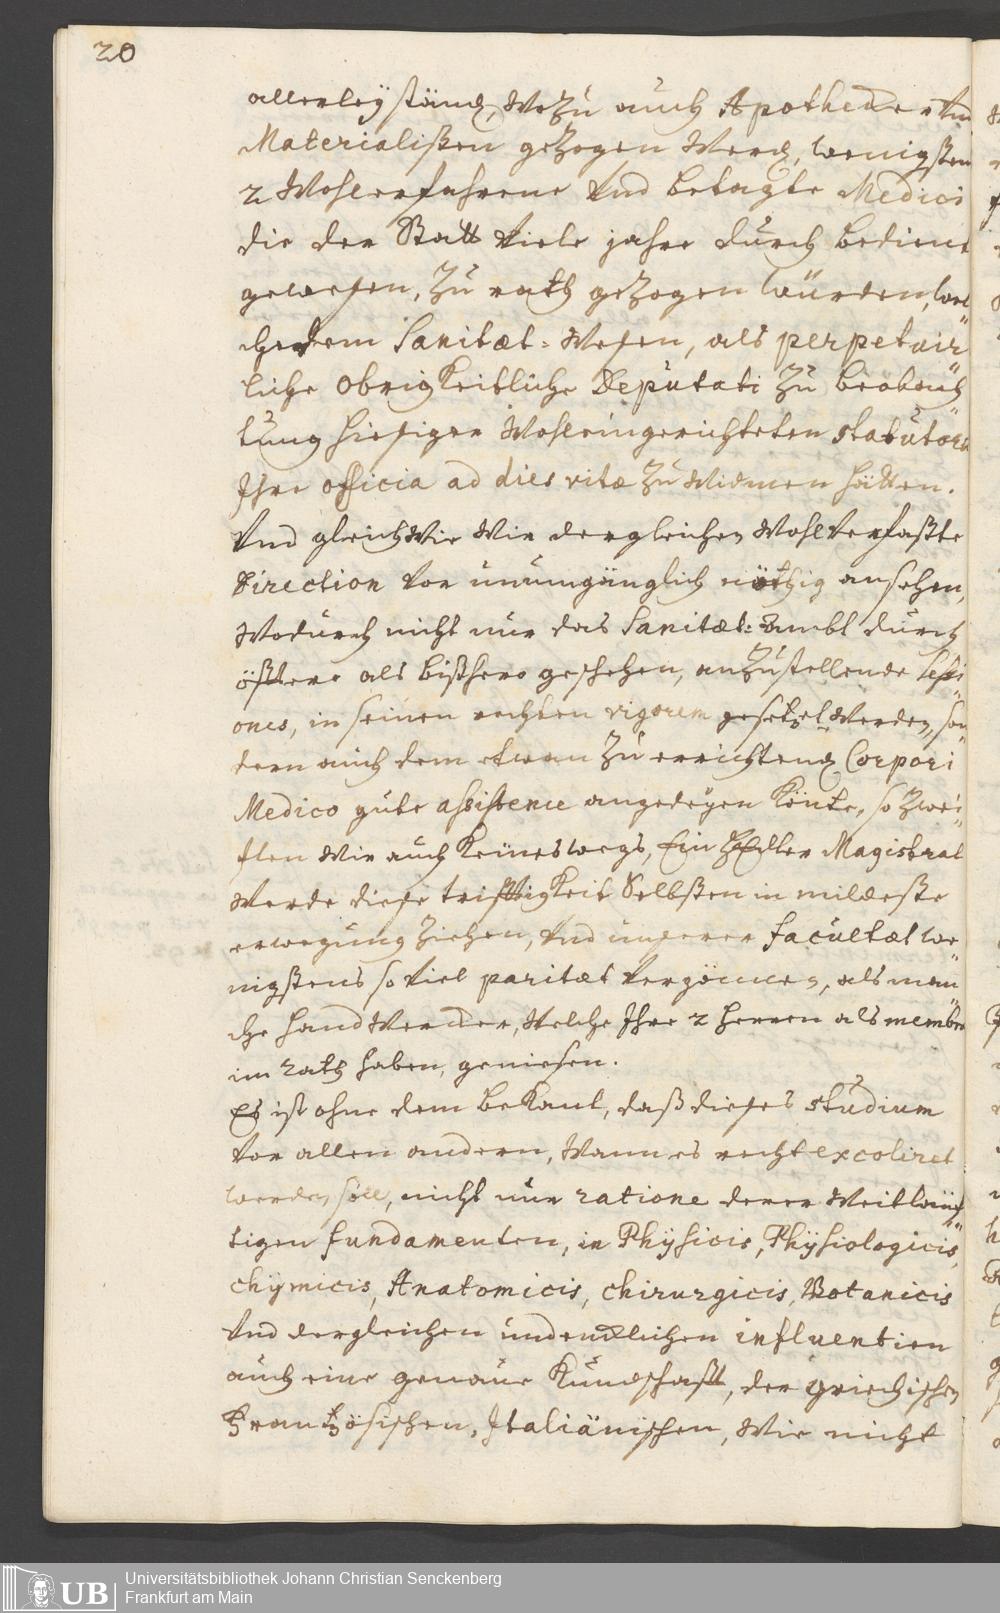 20
allerleÿ ständ, Wozu auch Apothecker Vnd
Materialisten gezogen Werd, wenigsten
2 Wohlerfahrene Vnd betagte Medici
die der Statt Viele jahre durch bedient
gewesen, Zu rath gezogen würden, wel„
che dem Sanitæt-Wesen, als perpetuir„
liche Obrigkeitliche Deputati Zu beobach„
tung hiesiger Wohleingerichteten statutorũ
Ihre officia ad dies vitæ Zu Widmen hätten.
Vnd gleich Wie Wir dergleichen Wohl Verfaßte
Direction Vor unumgänglich nöthig ansehen,
Wodurch nicht nur das Sanitæt-Ambt durch
öfftere als bißhero geschehen, anzustellende Sessi„
ones, in seinen rechten vigorem gesetzet Werden, son„
dern auch dem etwan Zu errichtend Corpori
Medico gute assistence angedeÿen Könte, so Zwei„
flen Wir auch Keineswegs, Ein HEdler Magistrat
Werde diese trifftigkeit Selbsten in mildeste
erwegung Ziehen, Vnd unserer facultæt we„
nigstens so Viel paritæt Vergönnen, als man„
che HandWercker, Welche Ihre 2 Herren als membra
im Rath haben, geniesen.
Es ist ohne dem beKant, daß dieses studium
Vor allen andern, Wann es recht excoliret
werden soll, nicht nur ratione derer Weitläuf„
tigen fundamenten, in Phÿsicis, Phÿsiologicis,
chÿmicis, Anatomicis, chirurgicis, Botanicis
Vnd dergleichen unendlichen influentien
auch eine genaue Kundschafft, der griechischen
Frantzösischen, Italiänischen, Wie nicht
UB
Universitätsbibliothek Johann Christian Senckenberg
Frankfurt am Main